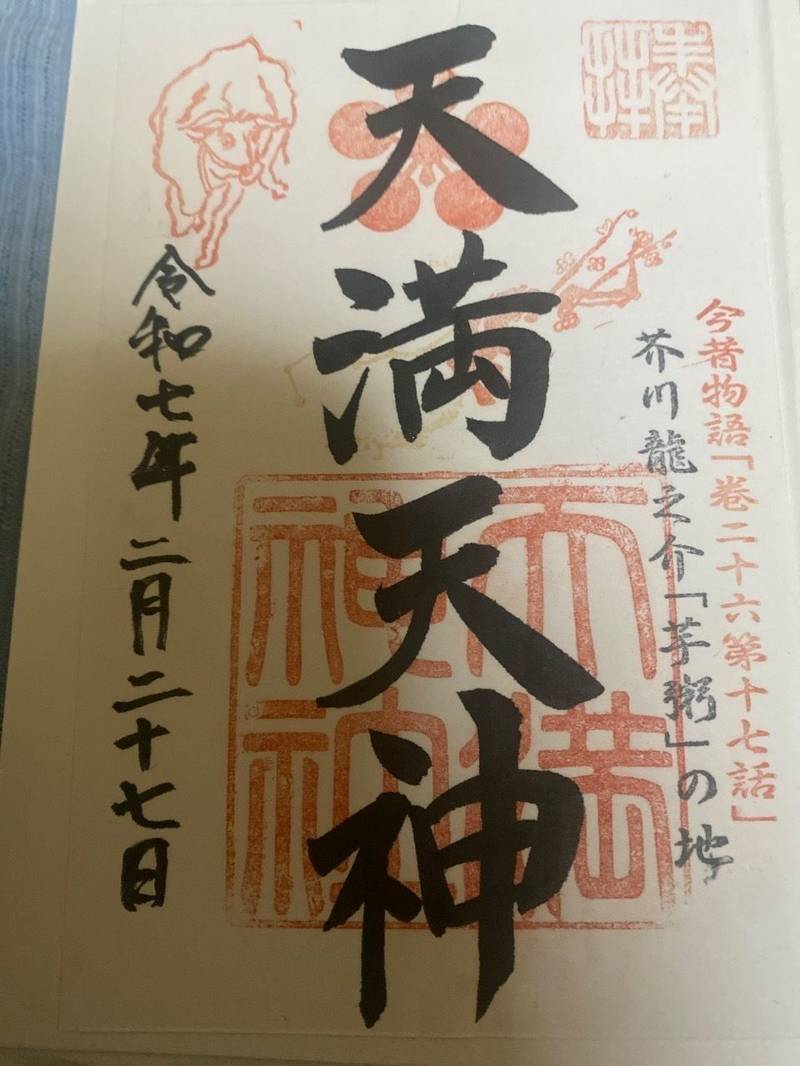 奉拝
今昔物語「巻二十六第十七話」
芥川龍之介「芋粥」の地
天満天神
天満神社
令和七年二月二十七日